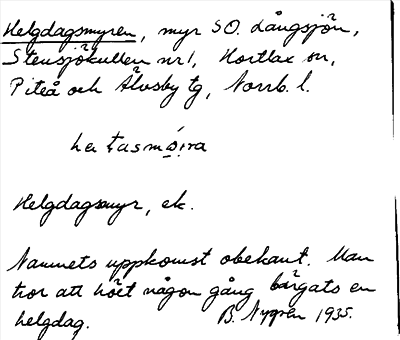 Helgdagsmyren, myr SO. Långsjön,
Stensjökullen nr 1, Hortlax sn,
Piteå och Älvsby tg, Norrb. l.
Helgdagsmyr, ek.
Namnets uppkomst obekant. Man
tror att höet någon gång bärgats en
helgdag. B. Nygren 1935.